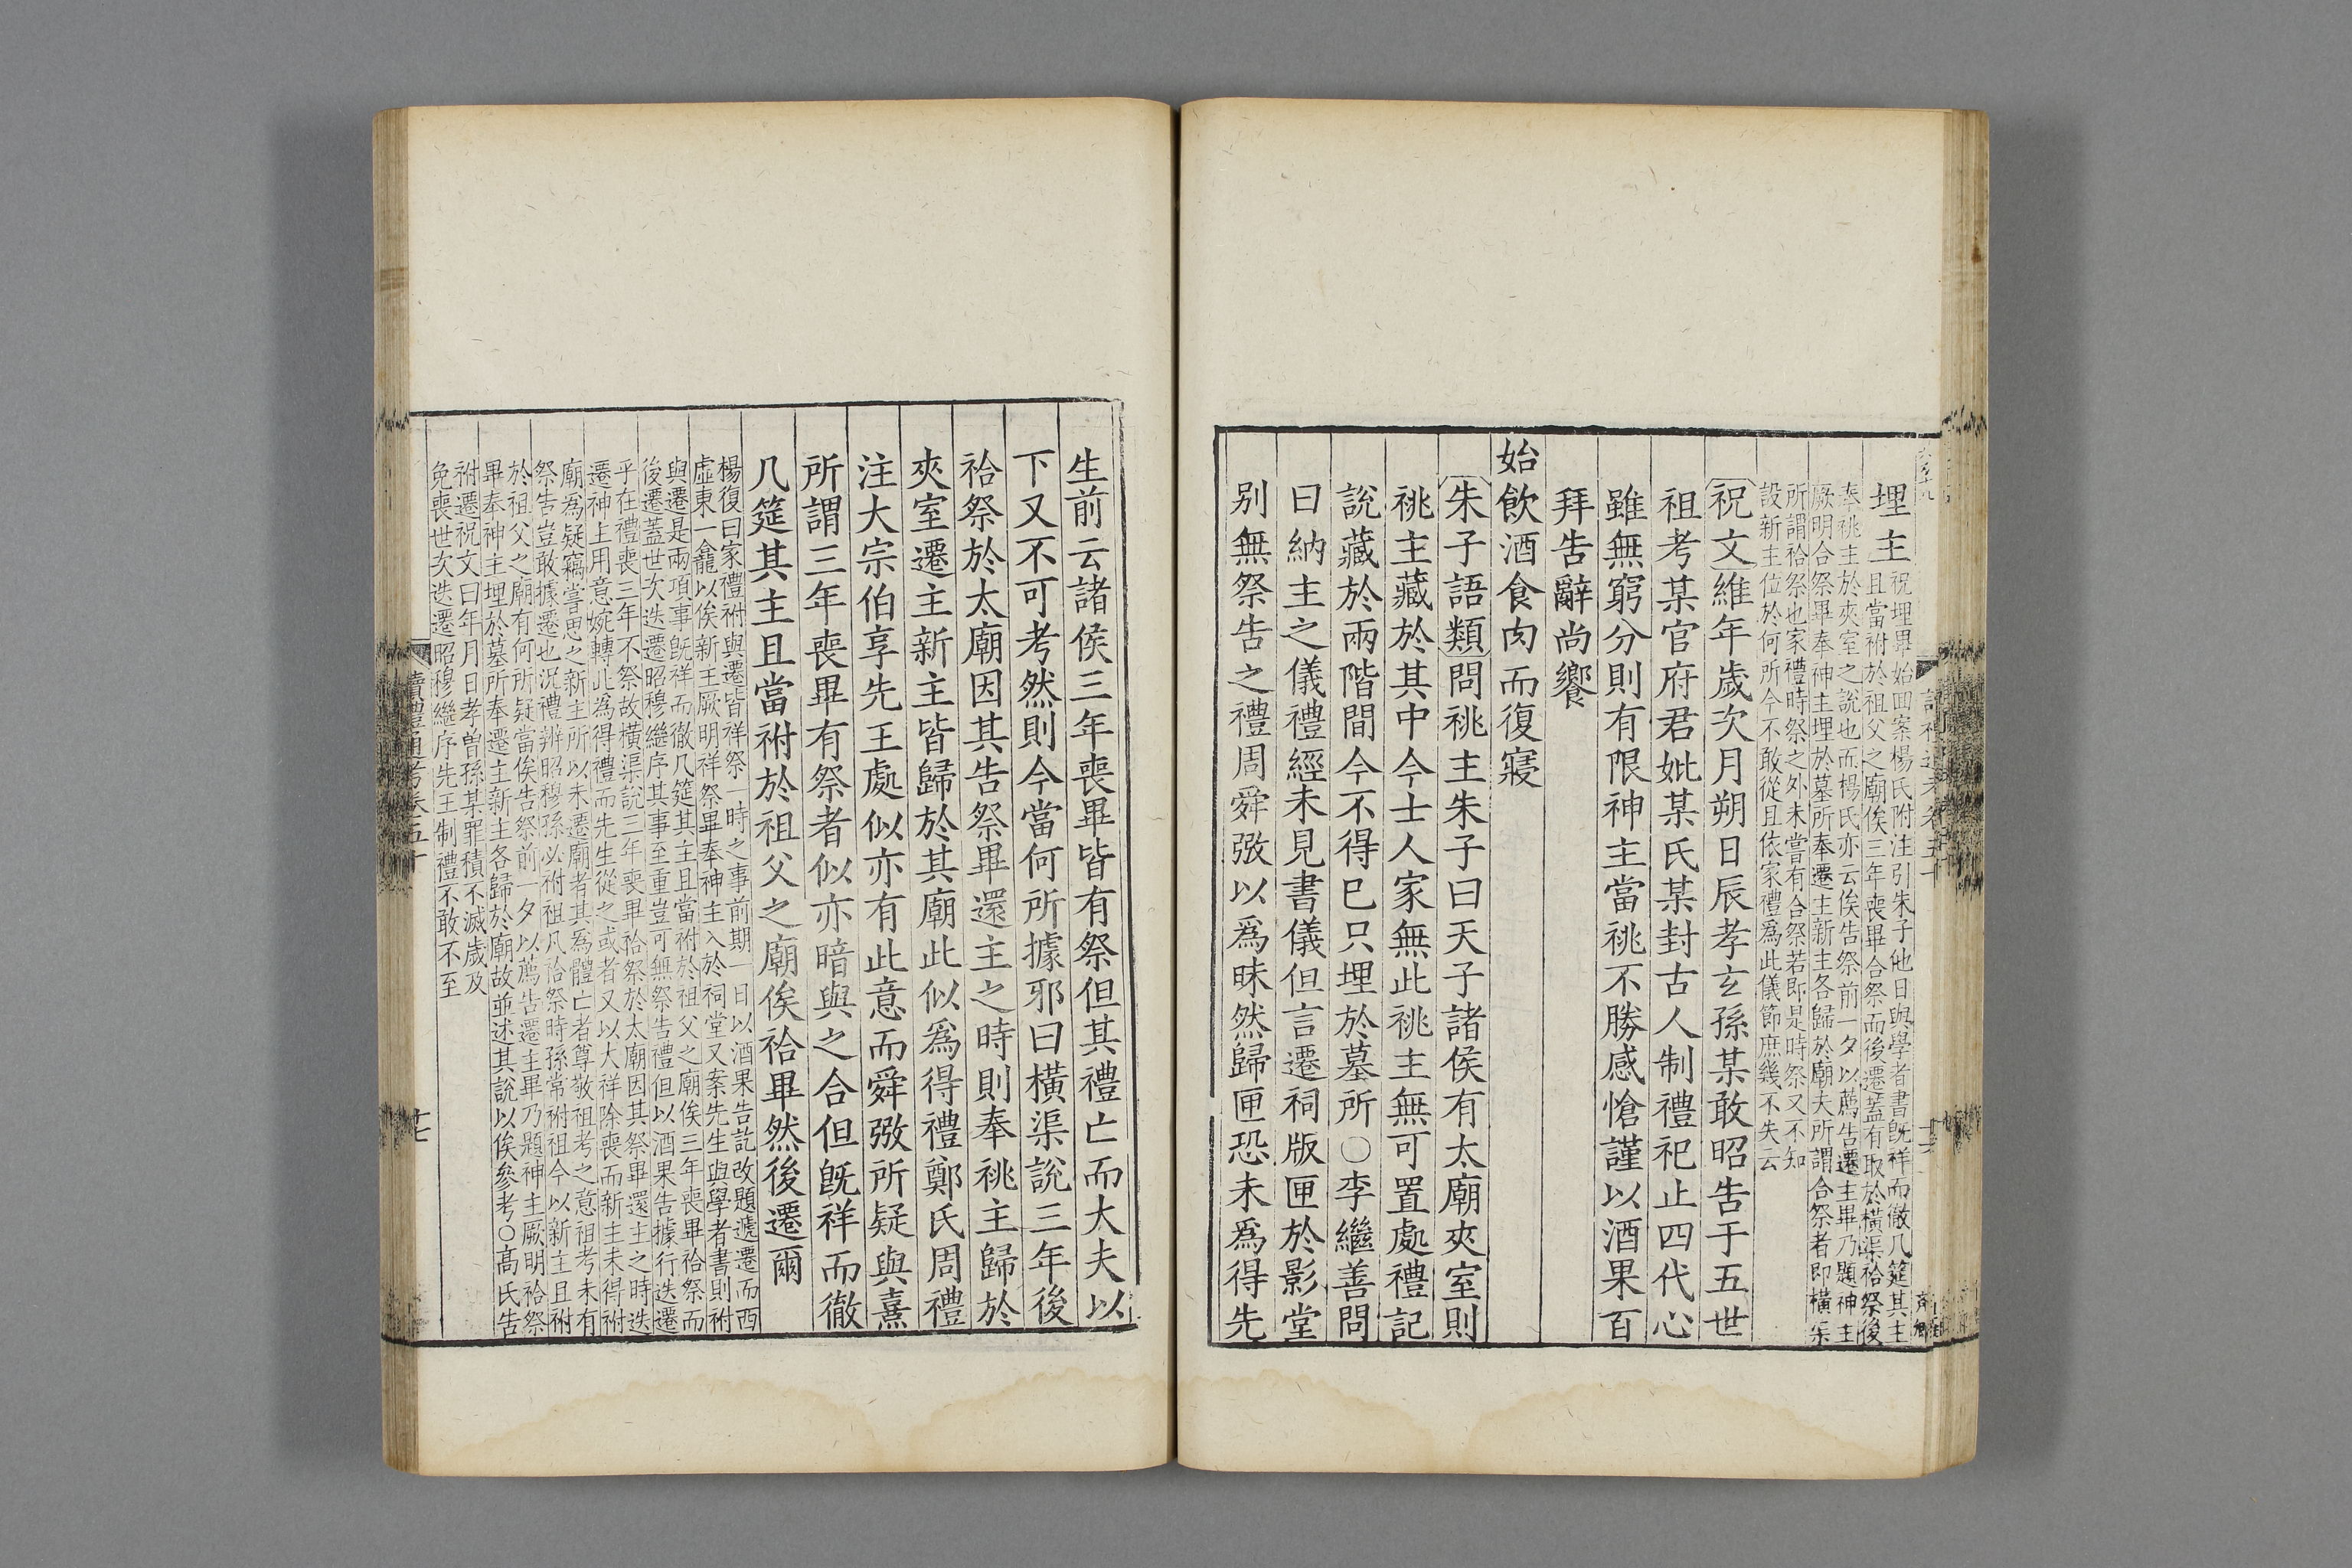 埋主祝埋畢始回案楊氏附注引朱子他日與學者書旣祥而徹几筵其主
且當祔於祖父之廟俟三年喪畢合祭而後遷蓋有取於橫渠祫祭後
奉祧主於夾室之說也而楊氏亦云俟告祭前一夕以薦告遷主畢乃題神主
厥明合祭畢奉神主埋於墓所奉遷主新主各歸於廟夫所謂合祭者即橫渠
所謂祫祭也家禮時祭之外未嘗有合祭若即是時祭又不知
設新主位於何所今不敢從且依家禮爲此儀節庶幾不失云
祝文維年歲次月朔日辰孝玄孫某敢昭告于五世
祖考某官府君妣某氏某封古人制禮祀止四代心
雖無窮分則有限神主當祧不勝感愴謹以酒果百
拜告辭尚饗
始飲酒食肉而復寢
朱子語類問祧主朱子曰天子諸侯有太廟夾室則
祧主藏於其中今士人家無此祧主無可置處禮記
說藏於兩階間今不得已只埋於墓所○李繼善問
曰納主之儀禮經未見書儀但言遷祠版匣於影堂
别無祭告之禮周舜弢以爲昧然歸匣恐未爲得先
生前云諸侯三年喪畢皆有祭但其禮亡而大夫以
下又不可考然則今當何所據邪曰橫渠說三年後
祫祭於太廟因其告祭畢還主之時則奉祧主歸於
夾室遷主新主皆歸於其廟此似爲得禮鄭氏周禮
注大宗伯享先王處似亦有此意而舜弢所疑與熹
所謂三年喪畢有祭者似亦暗與之合但旣祥而徹
几筵其主且當祔於祖父之廟俟祫畢然後遷爾
楊復曰家禮祔與遷皆祥祭一時之事前期一日以酒果告訖改題遞遷而西
虛東一龕以俟新主厥明祥祭畢奉神主入於祠堂又案先生與學者書則祔
與遷是兩項事旣祥而徹几筵其主且當祔於祖父之廟俟三年喪畢祫祭而
後遷蓋世次迭遷昭穆繼序其事至重豈可無祭告禮但以酒果告據行迭遷
乎在禮喪三年不祭故橫渠說三年喪畢祫祭於太廟因其祭畢還主之時迭
遷神主用意婉轉此爲得禮而先生從之或者又以大祥除喪而新主未得祔
廟爲疑竊嘗思之新主所以未遷廟者其爲體亡者尊敬祖考之意祖考未有
祭告豈敢據遷也況禮辨昭穆孫必祔祖凡祫祭時孫常祔祖今以新主且祔
於祖父之廟有何所疑當俟告祭前一夕以薦告遷主畢乃題神主厥明祫祭
畢奉神主埋於墓所奉遷主新主各歸於廟故並述其說以俟參考○高氏告
祔遷祝文曰年月日孝曾孫某罪積不滅歲及
免喪世次迭遷昭穆繼序先王制禮不敢不至
讀禮通考卷五十
十七